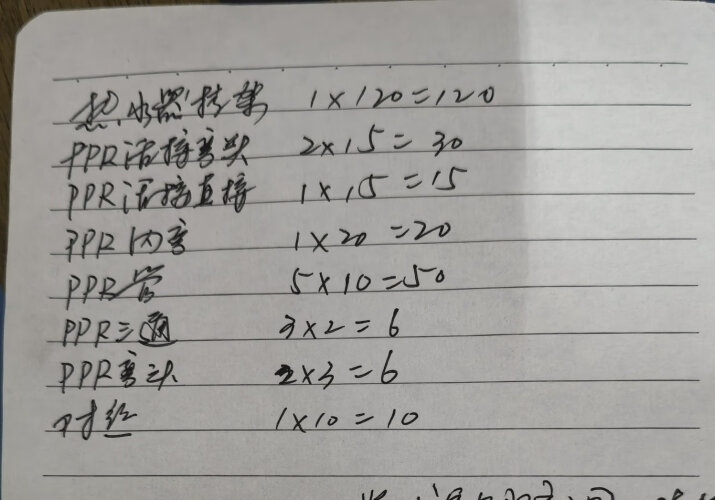 热水器挂架 1×120=120
PPR活接弯头 2×15=30
PPR活接直接 1×15=15
PPR内弯 1×20=20
PPR管 5×10=50
PPR三通 3×2=6
PPR弯头 2×3=6
对丝 1×10=10